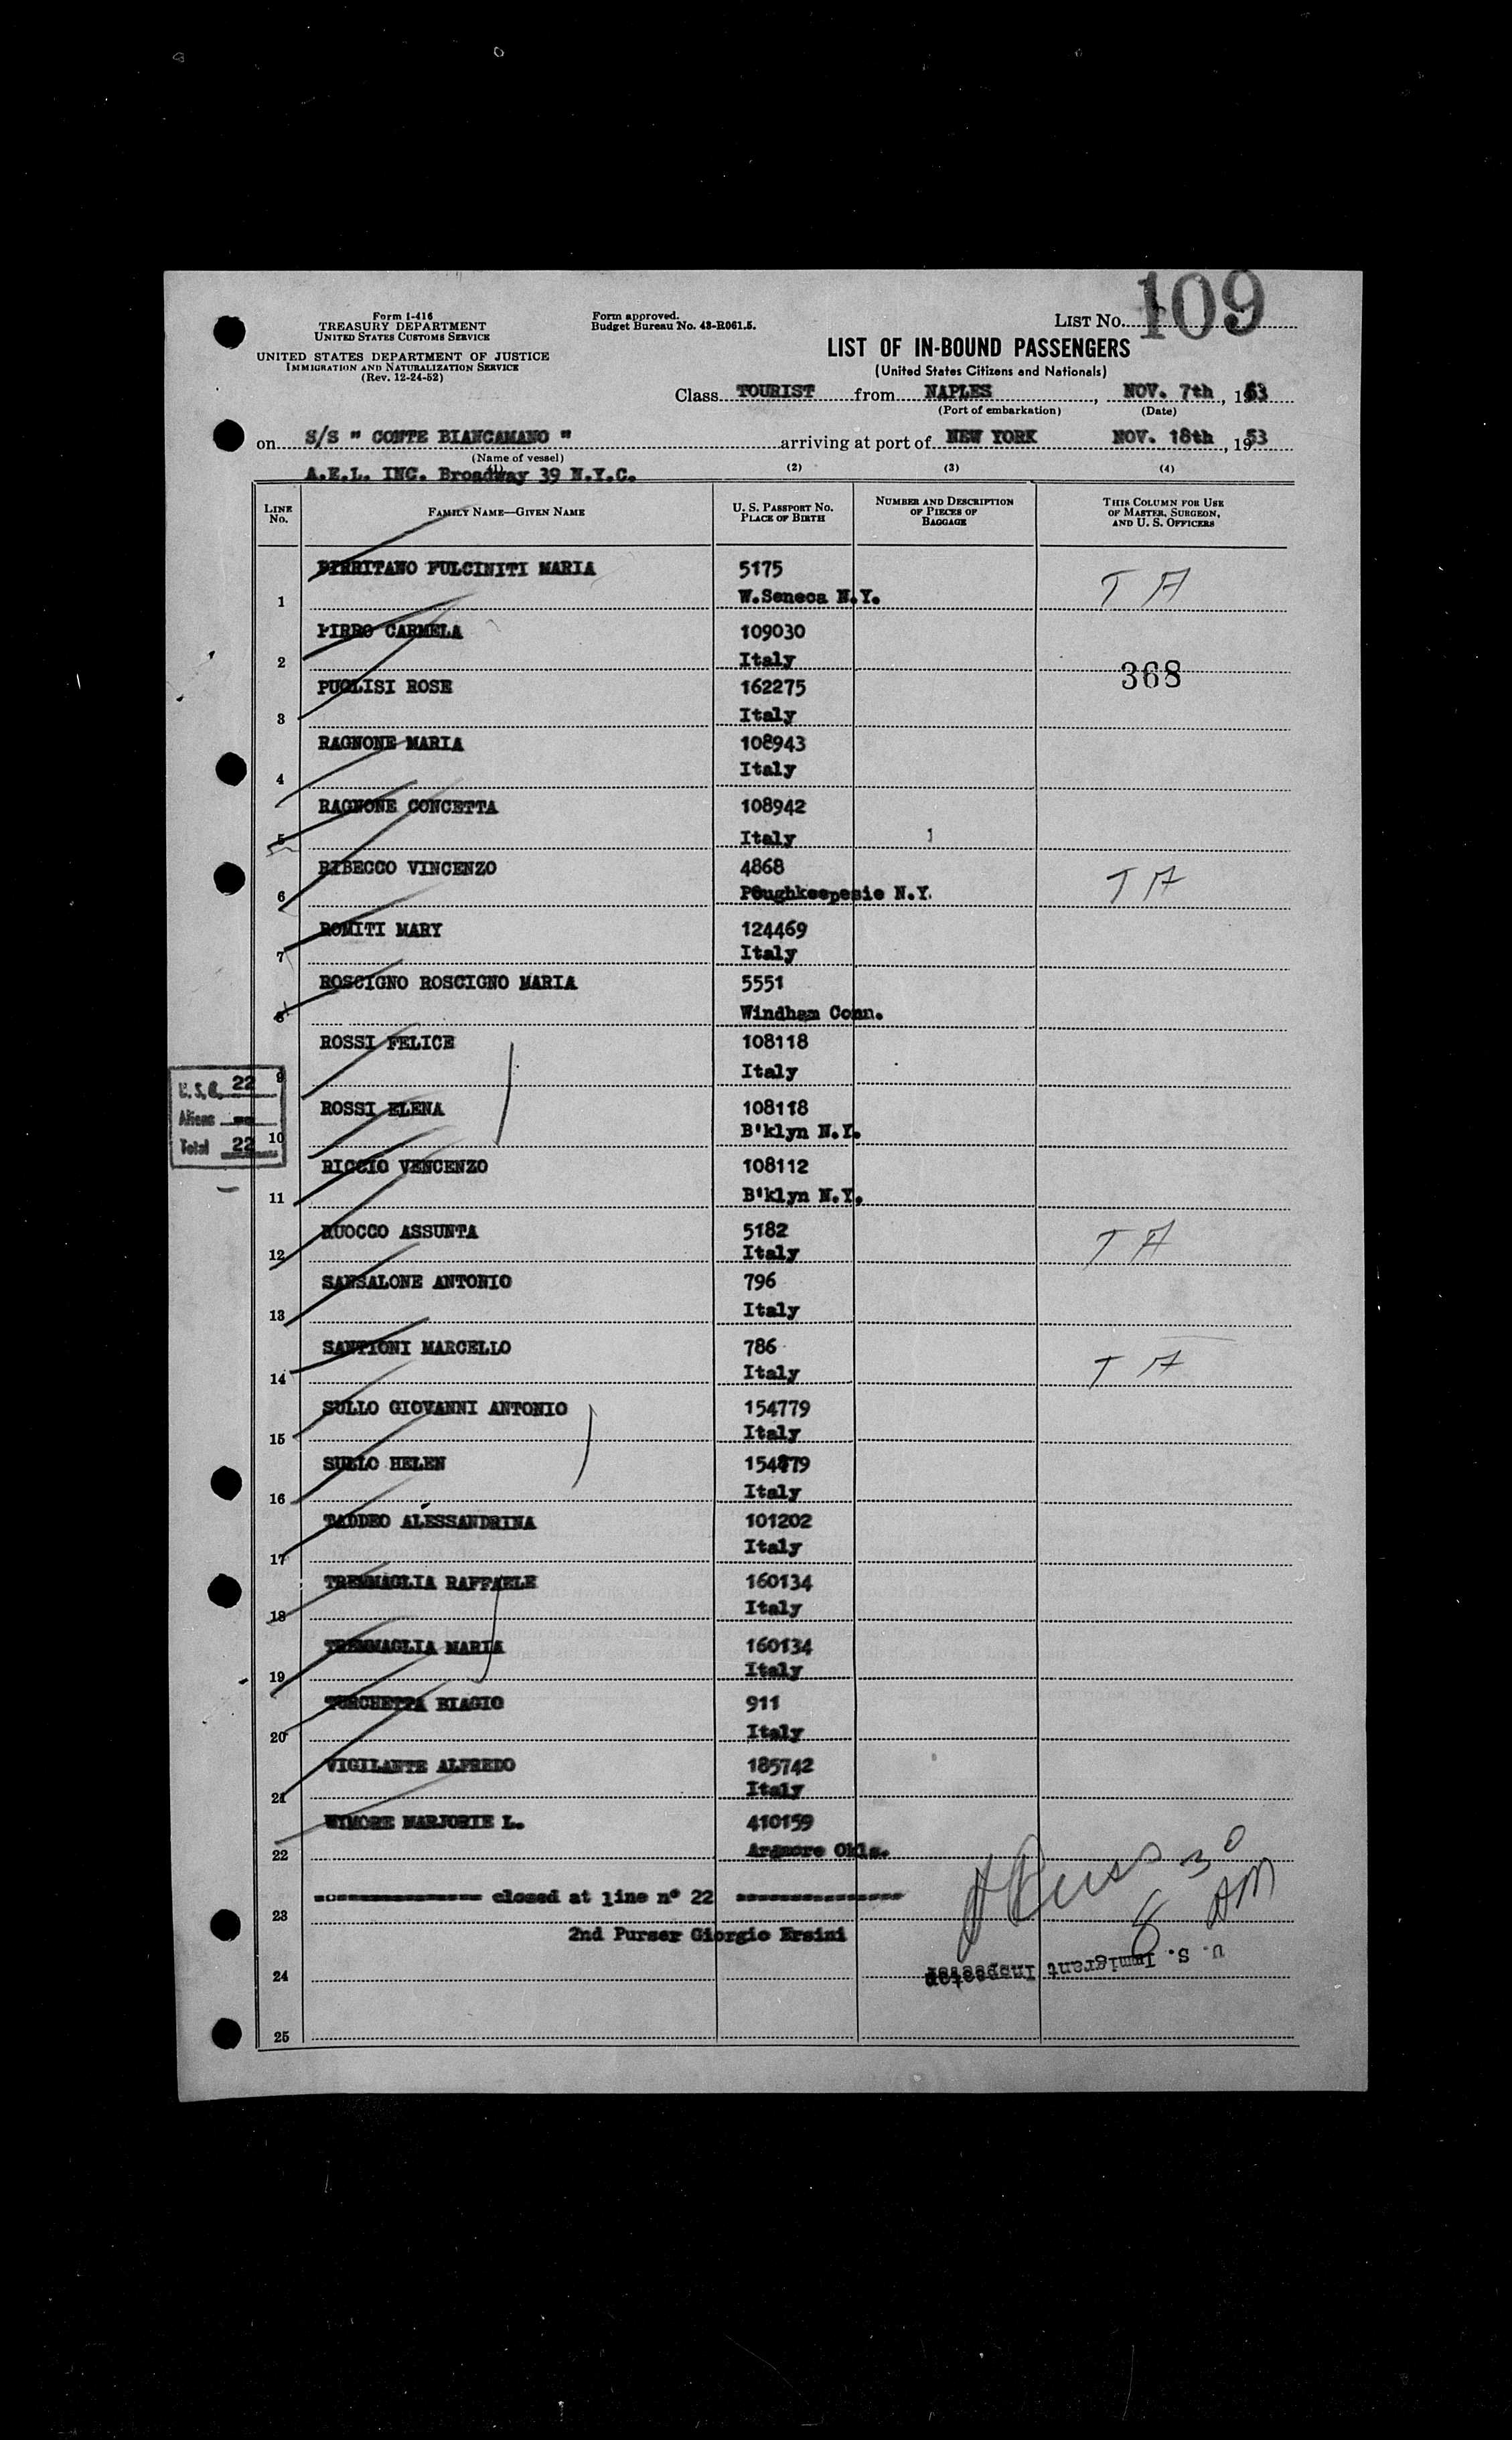 109
Form I-416
TREASURY DEPARTMENT
UNITED STATES CUSTOMS SERVICE
UNITED STATES DEPARTMENT OF JUSTICE
IMMIGRATION AND NATURALIZATION SERVICE
(Rev. 12-24-52)
Form approved.
Budget Bureau No. 43-R061.5.
LIST NO.
LIST OF IN-BOUND PASSENGERS
(United States Citizens and Nationals)
Class TOURIST from NAPLES, NOV. 7th, 1953
(Port of embarkation) (Date)
on S/S " CONTE BIANCAMANO " arriving at port of NEW YORK NOV. 18th, 1953
(Name of vessel)
A.E.L. INC. Broadway 39 N.Y.C.
(1) (2) (3) (4)
LINE NO. FAMILY NAME—GIVEN NAME U. S. PASSPORT NO. PLACE OF BIRTH NUMBER AND DESCRIPTION OF PIECES OF BAGGAGE THIS COLUMN FOR USE OF MASTER, SURGEON, AND U. S. OFFICERS
PIRRITANO FULCINITI MARIA 5175
1 W.Seneca N.Y. T A
PIRRO CARMELA 109030
2 Italy 368
PUGLISI ROSE 162275
3 Italy
RAGNONE MARIA 108943
4 Italy
RAGNONE CONCETTA 108942
5 Italy
RIBECCO VINCENZO 4868
6 Poughkeepesie N.Y. T A
ROMITI MARY 124469
7 Italy
ROSCIGNO ROSCIGNO MARIA 5551
8 Windham Conn.
ROSSI FELICE 108118
9 Italy
U. S. C. 22
Aliens --
Total 22
ROSSI ELENA 108118
10 B'klyn N.Y.
RICCIO VENCENZO 108112
11 B'klyn N.Y.
RUOCCO ASSUNTA 5182
12 Italy T A
SANSALONE ANTONIO 796
13 Italy
SANTIONI MARCELLO 786
14 Italy T A
SULLO GIOVANNI ANTONIO 154779
15 Italy
SULLO HELEN 154779
16 Italy
TADDEO ALESSANDRINA 101202
17 Italy
TREMMAGLIA RAFFAELE 160134
18 Italy
TREMMAGLIA MARIA 160134
19 Italy
TURCHETTA BIAGIO 911
20 Italy
VIGILANTE ALFREDO 185742
21 Italy
WIMORE MARJORIE L. 410159
22 Ardmore Okla.
closed at line n° 22
23
2nd Purser Giorgio Ersini
8 30 AM
U. S. Immigrant Inspector
24
25